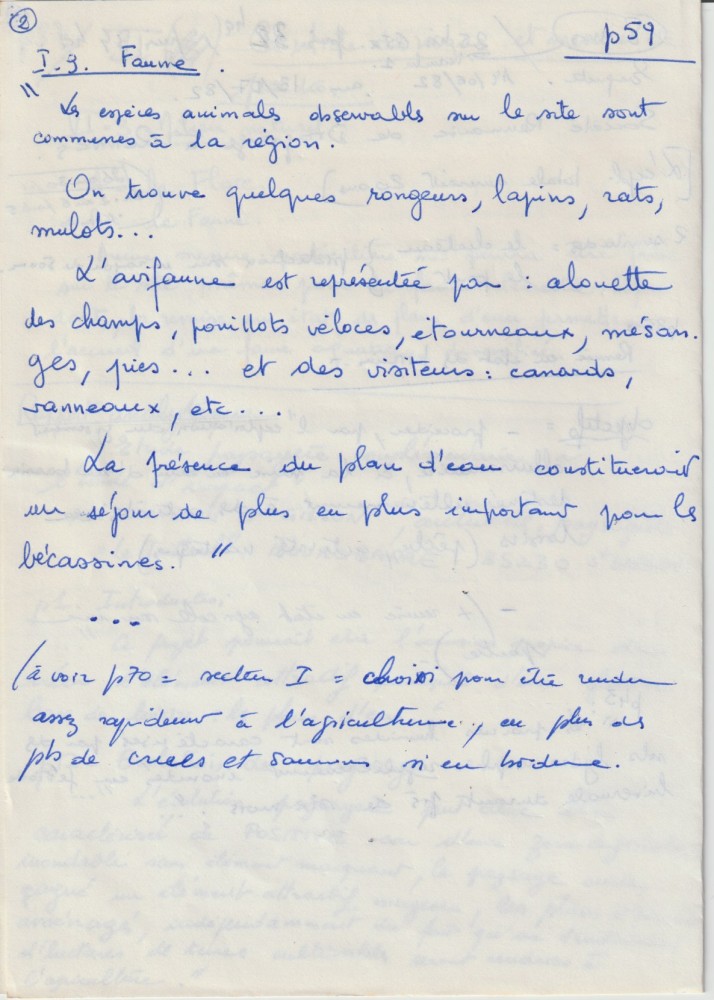 2
p59
I.3. Faune.
" Les espèces animals observables sur le site sont
communes à la région.
On trouve quelques rongeurs, lapins, rats,
mulots...
L'avifaune est représentée par : alouette
des champs, pouillots véloces, étourneaux, mésan.
ges, pies... et des visiteurs : canards,
vanneaux, etc...
La présence du plan d'eau constituerait
un séjour de plus en plus important pour les
bécassines. "
...
(à voir p70 = secteur I = choisi pour être rendu
assez rapidement à l'agriculture, en plus des
pbs de et saumons si en bordure.